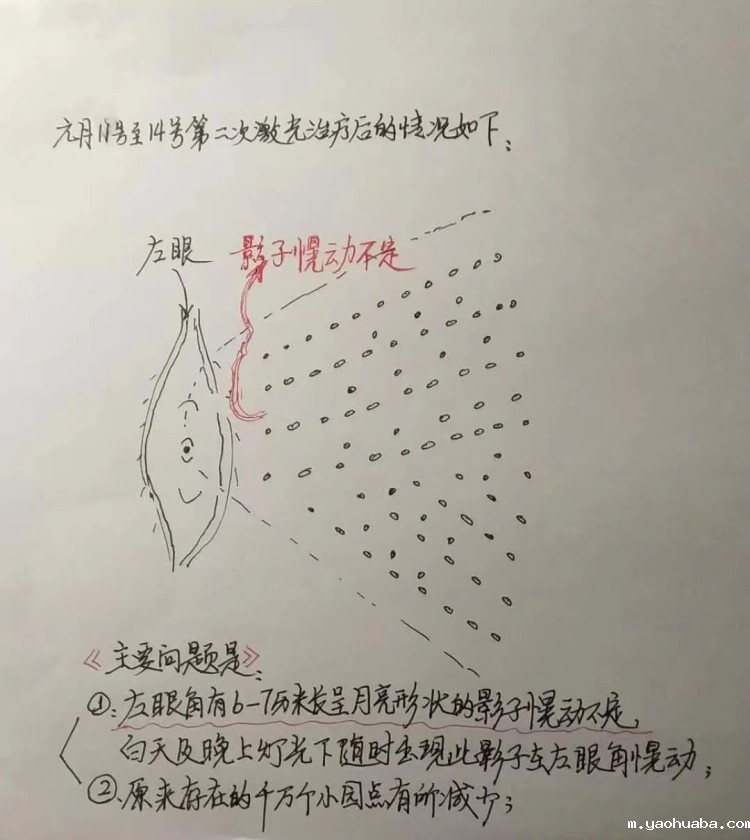 元月11号至14号第二次激光治疗后的情况如下:
左眼
影子慌动不定
《主要问题是》:
①:左眼角有6-7厘米长呈月亮形状的影子慌动不定,
白天及晚上灯光下随时出现此影子在左眼角慌动;
②、原来存在的千万个小园点有所减少;
m.yaohuaba.com